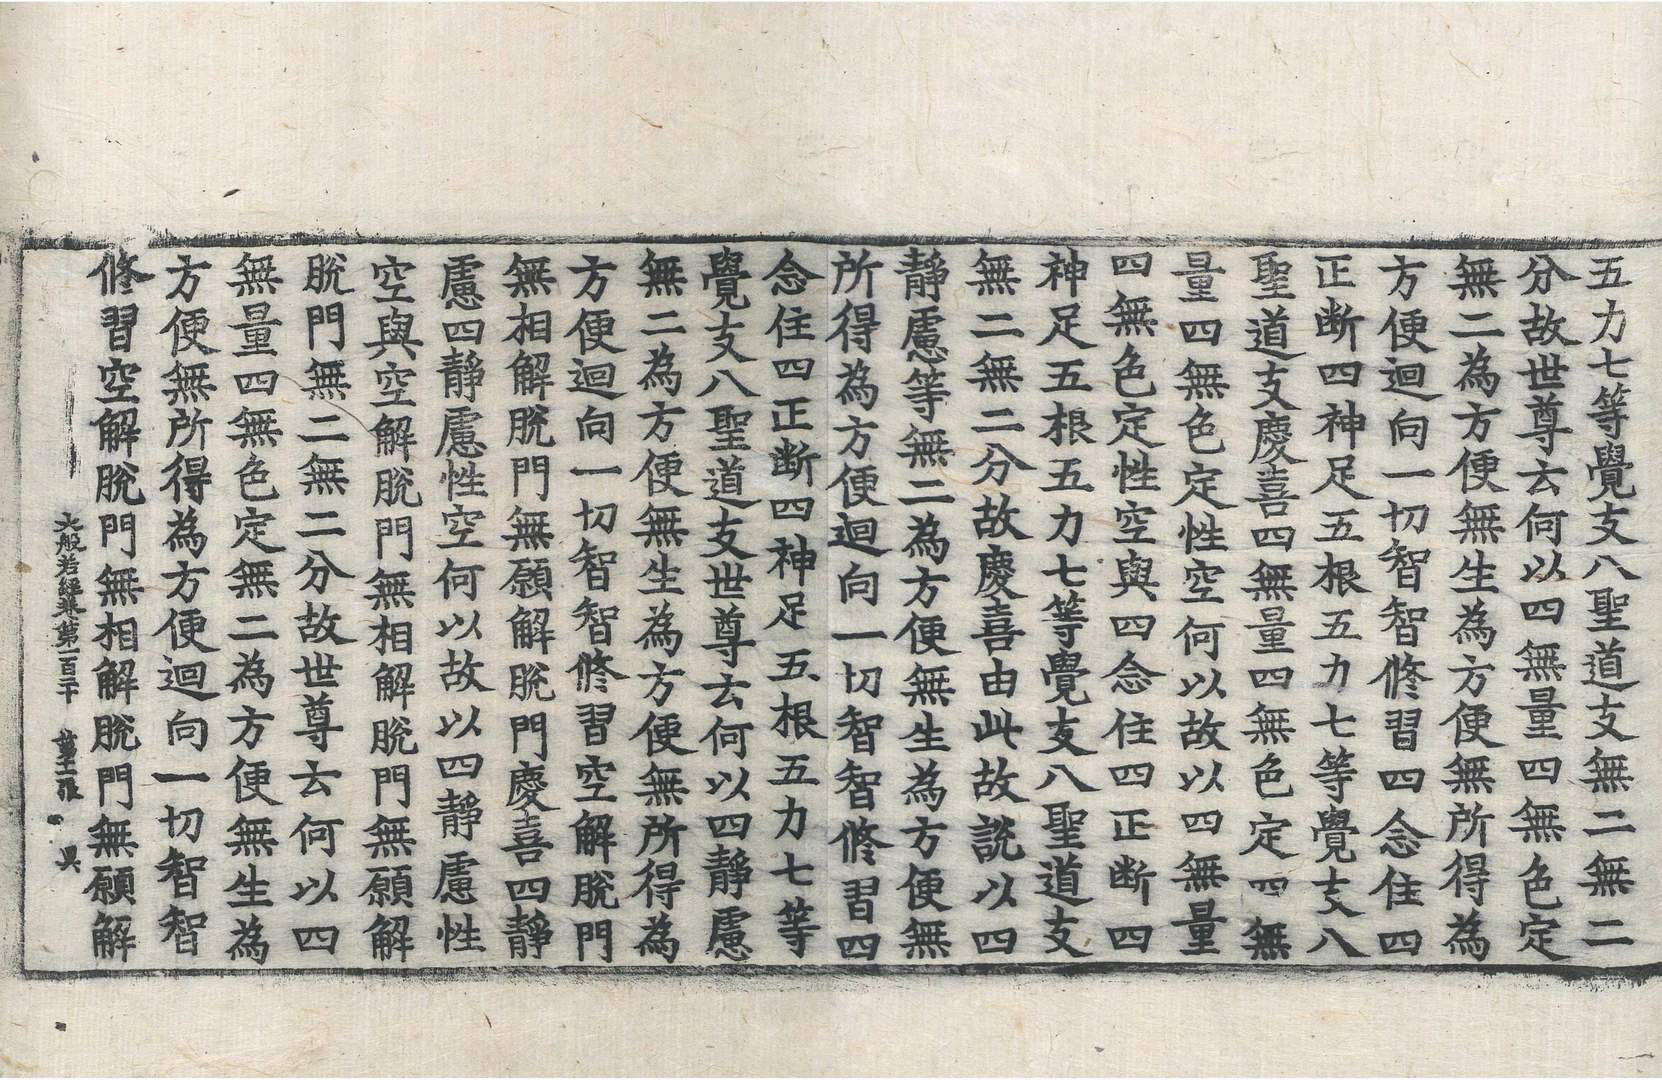 五力七等覺支八聖道支無二無二
分故世尊云何以四無量四無色定
無二為方便無生為方便無所得為
方便迴向一切智智修習四念住四
正斷四神足五根五力七等覺支八
聖道支慶喜四無量四無色定四無
量四無色定性空何以故以四無量
四無色定性空與四念住四正斷四
神足五根五力七等覺支八聖道支
無二無二分故慶喜由此故說以四
靜慮等無二為方便無生為方便無
所得為方便迴向一切智智修習四
念住四正斷四神足五根五力七等
覺支八聖道支世尊云何以四靜慮
無二為方便無生為方便無所得為
方便迴向一切智智修習空解脫門
無相解脫門無願解脫門慶喜四靜
慮四靜慮性空何以故以四靜慮性
空與空解脫門無相解脫門無願解
脫門無二無二分故世尊云何以四
無量四無色定無二為方便無生為
方便無所得為方便迴向一切智智
修習空解脫門無相解脫門無願解
大般若經卷第一百二十 第十二張 吳